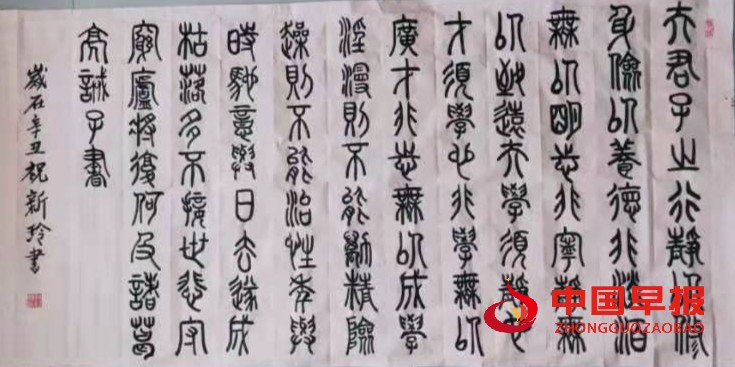 夫君子之行靜以修
身儉以養德非淡泊
無以明志非寧靜無
以致遠夫學須靜也
才須學也非學無以
廣才非志無以成學
淫漫則不能勵精險
躁則不能治性年與
時馳意與日去遂成
枯落多不接世悲守
窮廬將復何及諸葛
亮誡子書
歲在辛丑祝新玲書
中国早报
ZHONGGUOZAOBAO